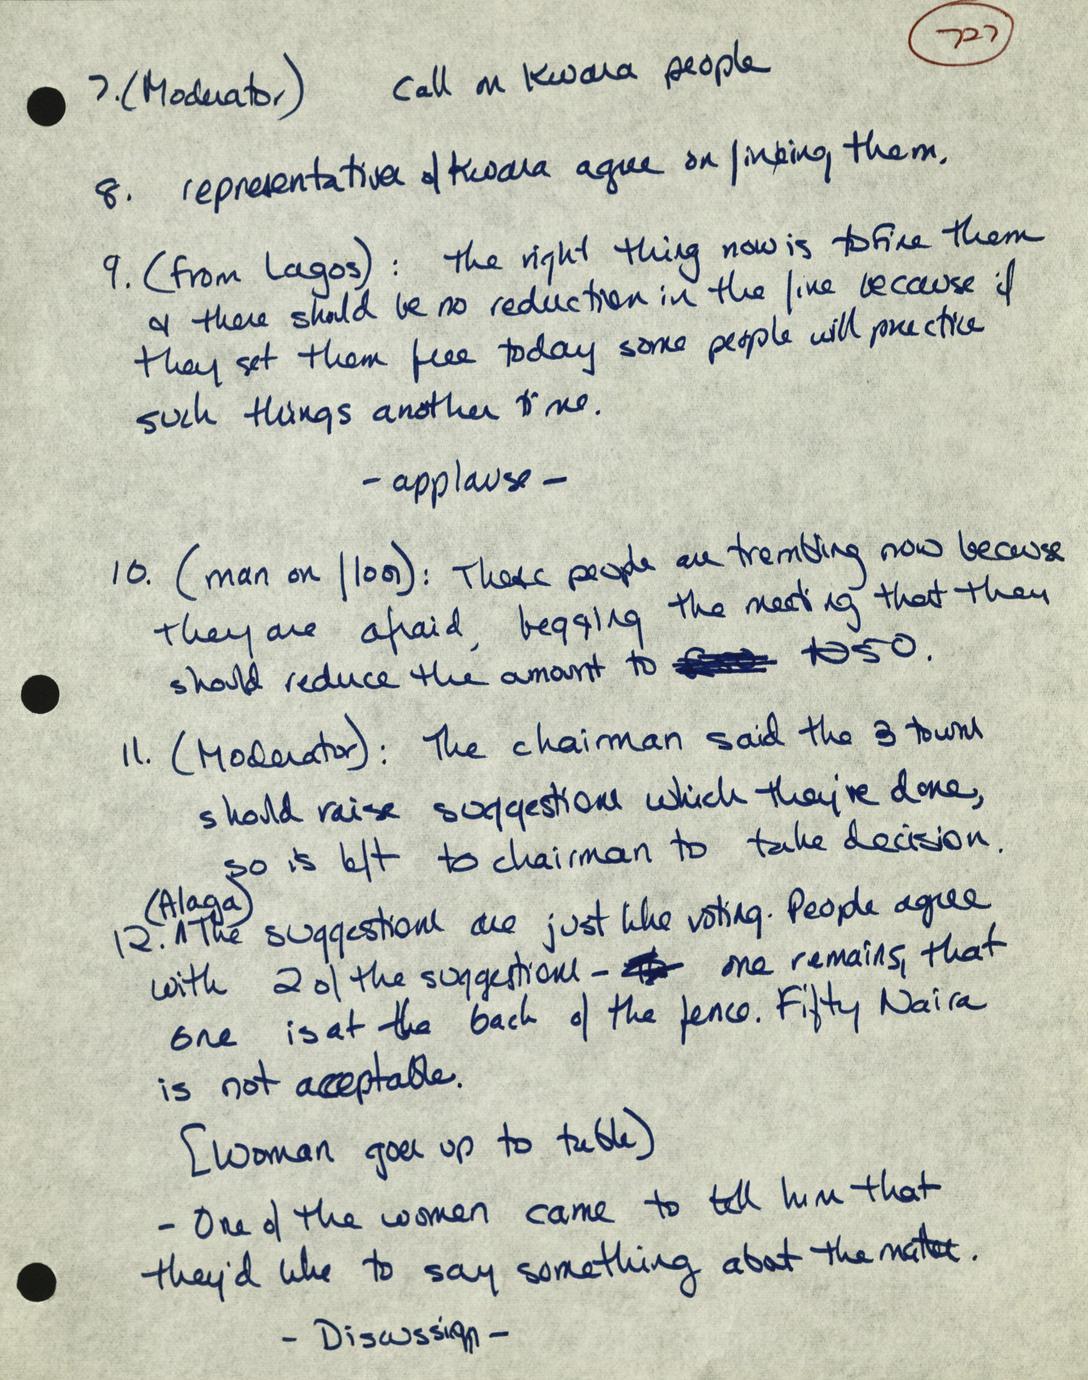 727
7. (Moderator) Call on Kwara people
8. representative of Kwara agree on fineing them.
9. (from Lagos): the right thing now is to fine them
& there should be no reduction in the fine because if
they set them free today some people will practice
such things another time.
- applause -
10. (man on floor): These people are trembling now because
they are afraid, begging the meeting that they
should reduce the amount to ₦50.
11. (Moderator): The chairman said the 3 towns
should raise suggestions which they've done,
so is left to chairman to take decision.
(Alaga)
12. ^The suggestions are just like voting. People agree
with 2 of the suggestions - one remains, that
one is at the back of the fence. Fifty Naira
is not acceptable.
[Woman goes up to table)
- One of the women came to tell him that
they'd like to say something about the matter.
- Discussion -